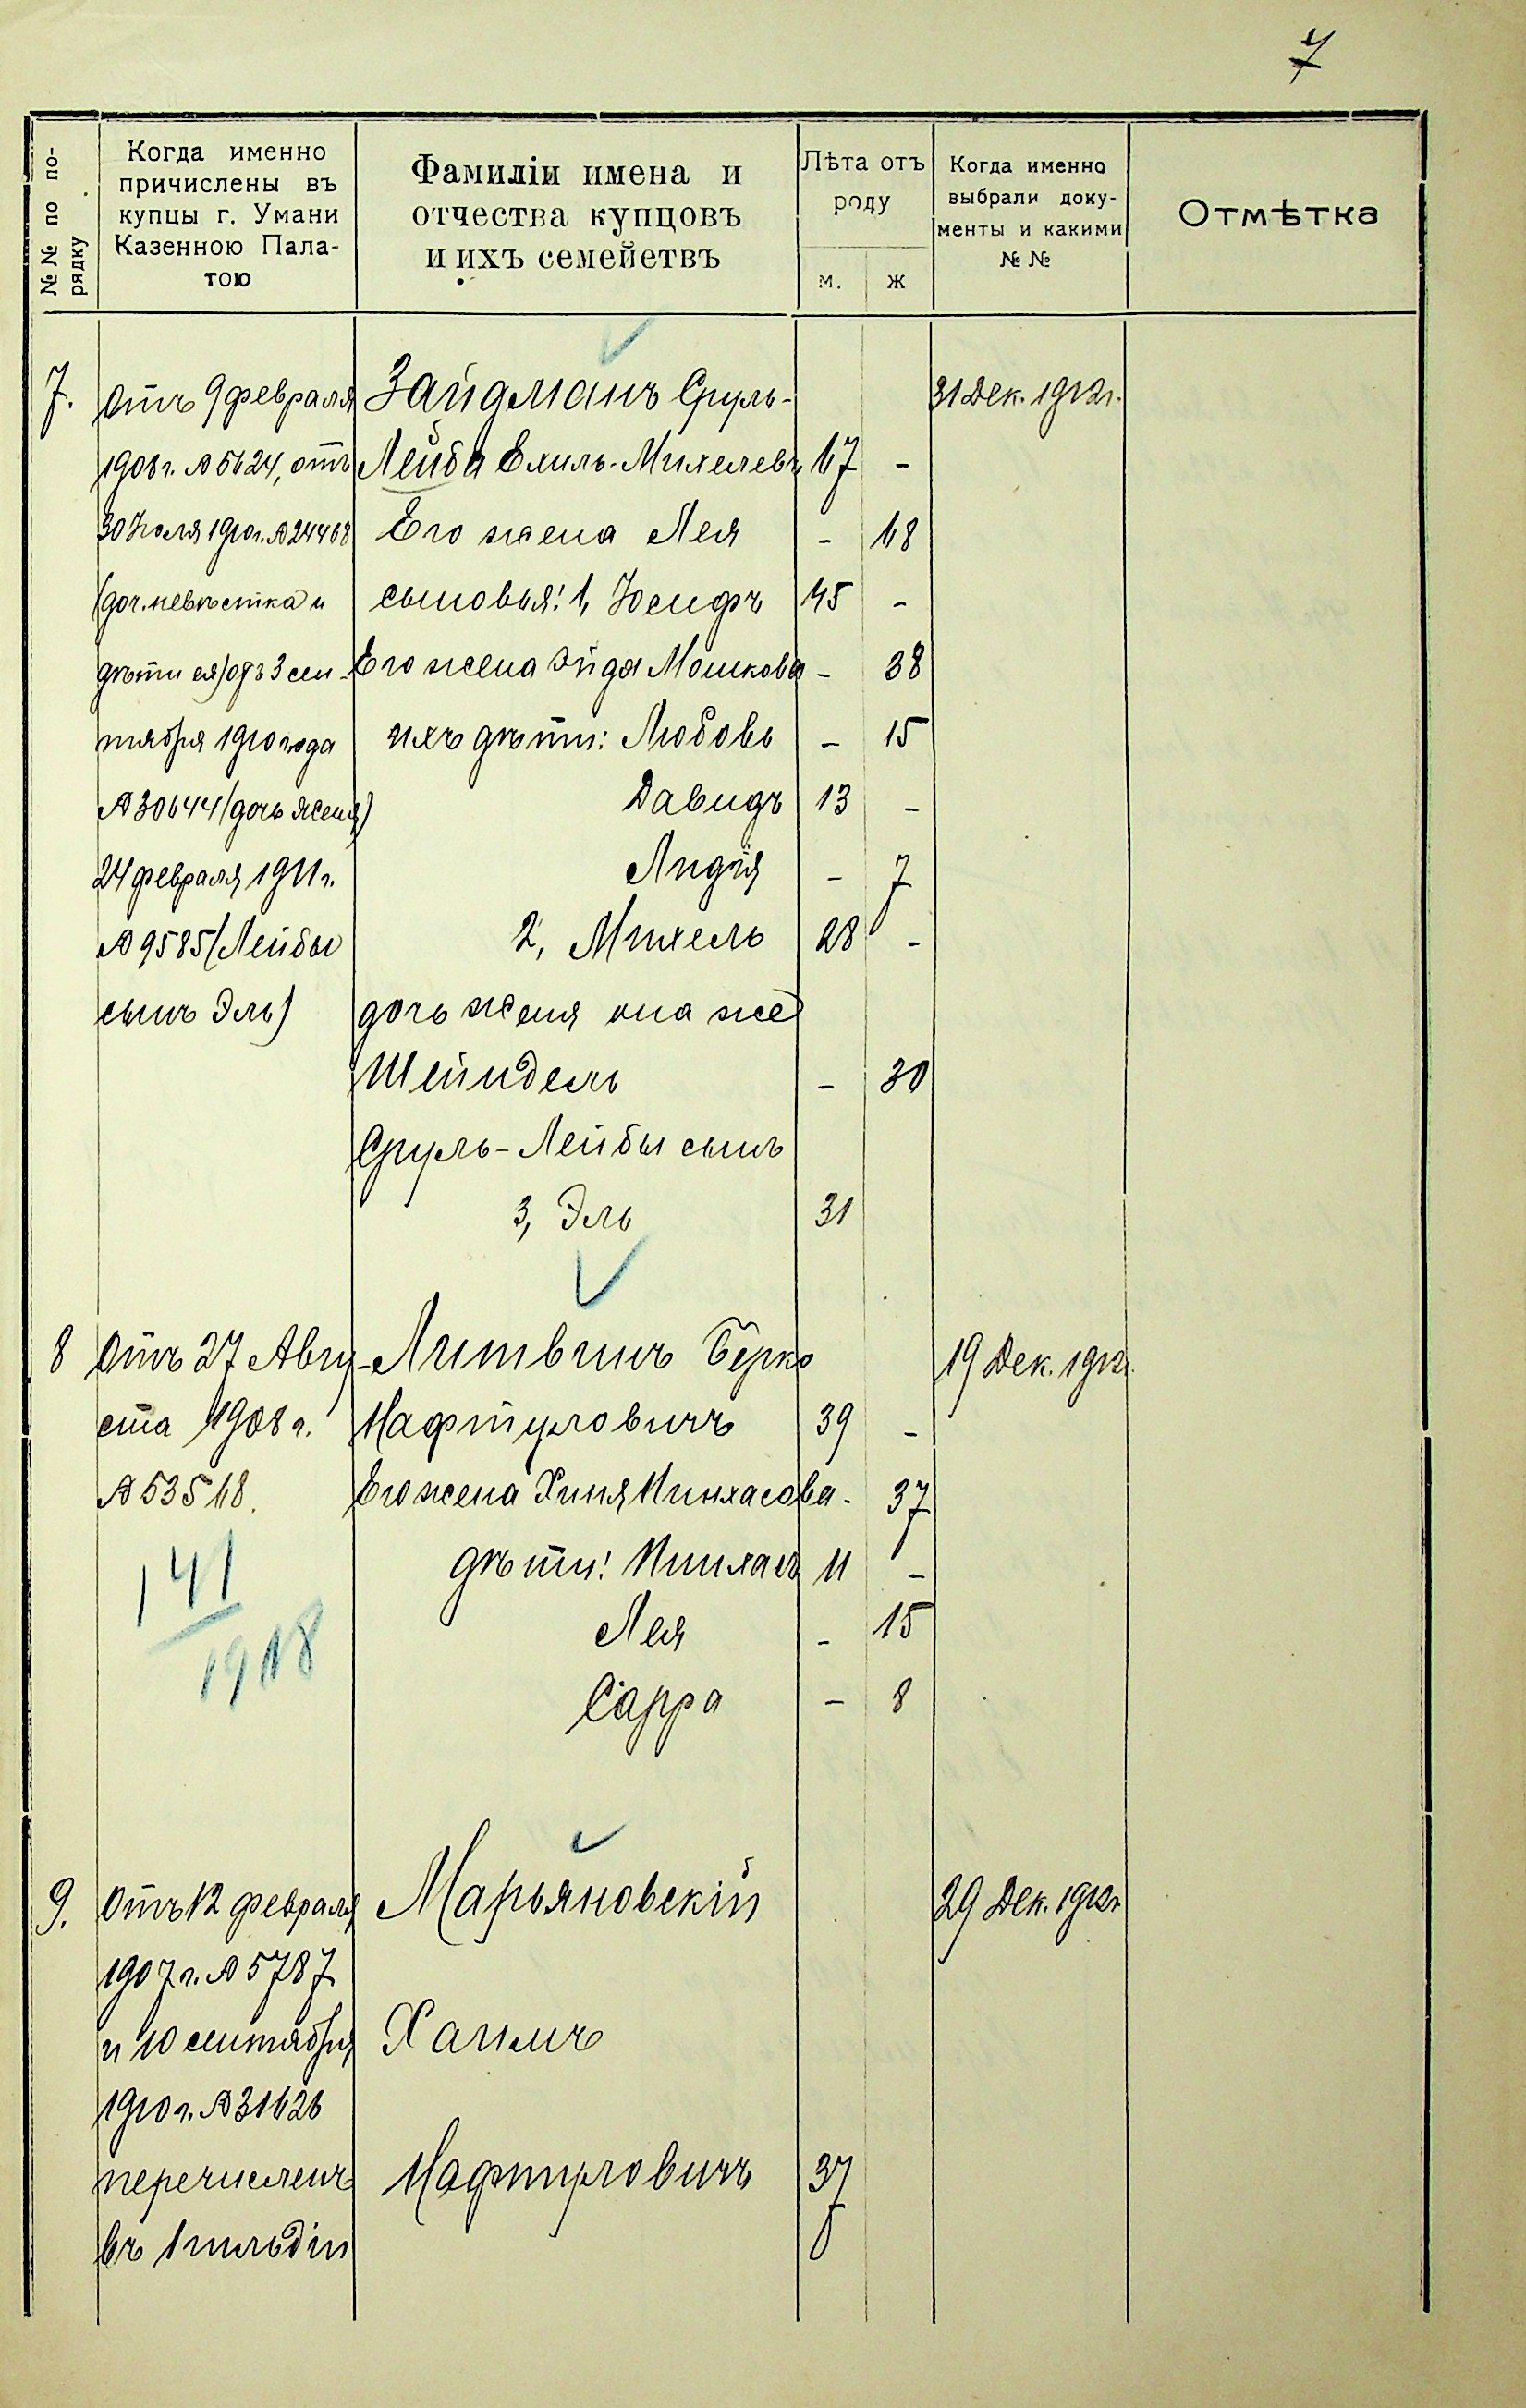 7
№№ по по-
рядку
Когда именно
причислены въ
купцы г. Умани
Казенною Пала-
тою
Фамиліи имена и
отчества купцовъ
и ихъ семействъ
Лѣта отъ
роду
м. ж
Когда именно
выбрали доку-
менты и какими
№ №
Отмѣтка
7. Отъ 9 февраля Зайдманъ Сруль- 31 Дек. 1912 г.
1908 г. № 5624, отъ Лейба Ехиль-Михелевъ 67 -
30 Іюля 1910 г. № 24468 Его жена Лея - 68
(доч. невѣстка и сыновья: 1, Іосифъ 45 -
дѣти ея) отъ 3 сен- Его жена Эйдя Мошкова - 38
тября 1910 года ихъ дѣти: Любовь - 15
№ 30644 (дочь Женя) Давидъ 13 -
24 февраля 1911 г. Лидія - 7
№ 9585 (Лейбы 2, Михель 28 -
сынъ Эль) дочь Женя она же
Шейндель - 30
Сруль-Лейбы сынъ
3, Эль 31
8 Отъ 27 Авгу- Литвинъ Берко 19 Дек. 1912 г.
ста 1908 г. Нафтуловичъ 39 -
№ 53568. Его жена Хиня Пинхасова - 37
дѣти: Пинхасъ 11 -
Лея - 15
Сарра - 8
141
1918
9. Отъ 12 февраля Марьяновскій 29 Дек. 1912 г
1907 г. № 5787
и 10 сентября Хаимъ
1910 г. № 31626
перечисленъ Нафтуловичъ 37
въ 1 гильдіи